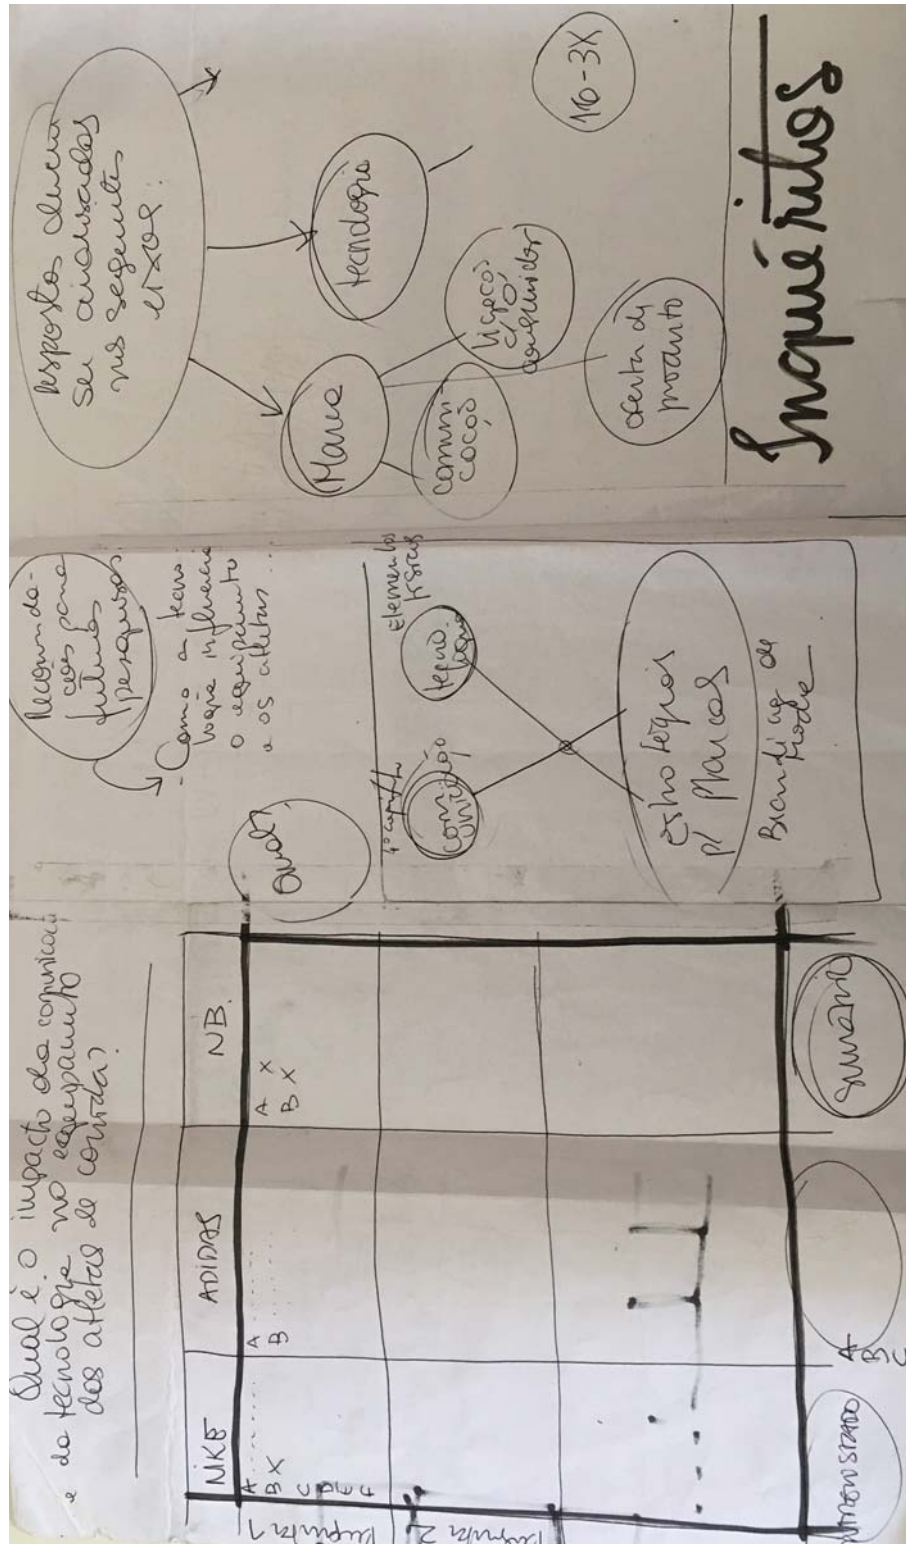 Qual é o impacto da comunicação
e da tecnologia no equipamento
dos atletas de corrida?
NIKE
ADIDAS
NB.
Pergunta 1
A
B X
C
D
E
F
A
B
A
B X X
Pergunta 2
Pergunta
ENTREVISTADO
A
B
C
SUMÁRIO
Recomenda-
ções para
futuras
pesquisas:
- Como a tecno
logia influencia
o equipamento
e os atletas
Qual?
4º capítulo
Elementos
físicos
comunicação
tecno
logia
estratégias
p/ Marcas
Branding de
Moda
respostas devem
ser analisadas
nos seguintes
eixos:
Marca
tecnologia
comuni
cação
ligação
c/ o
consumidor
oferta de
produto
16-3X
Inquéritos